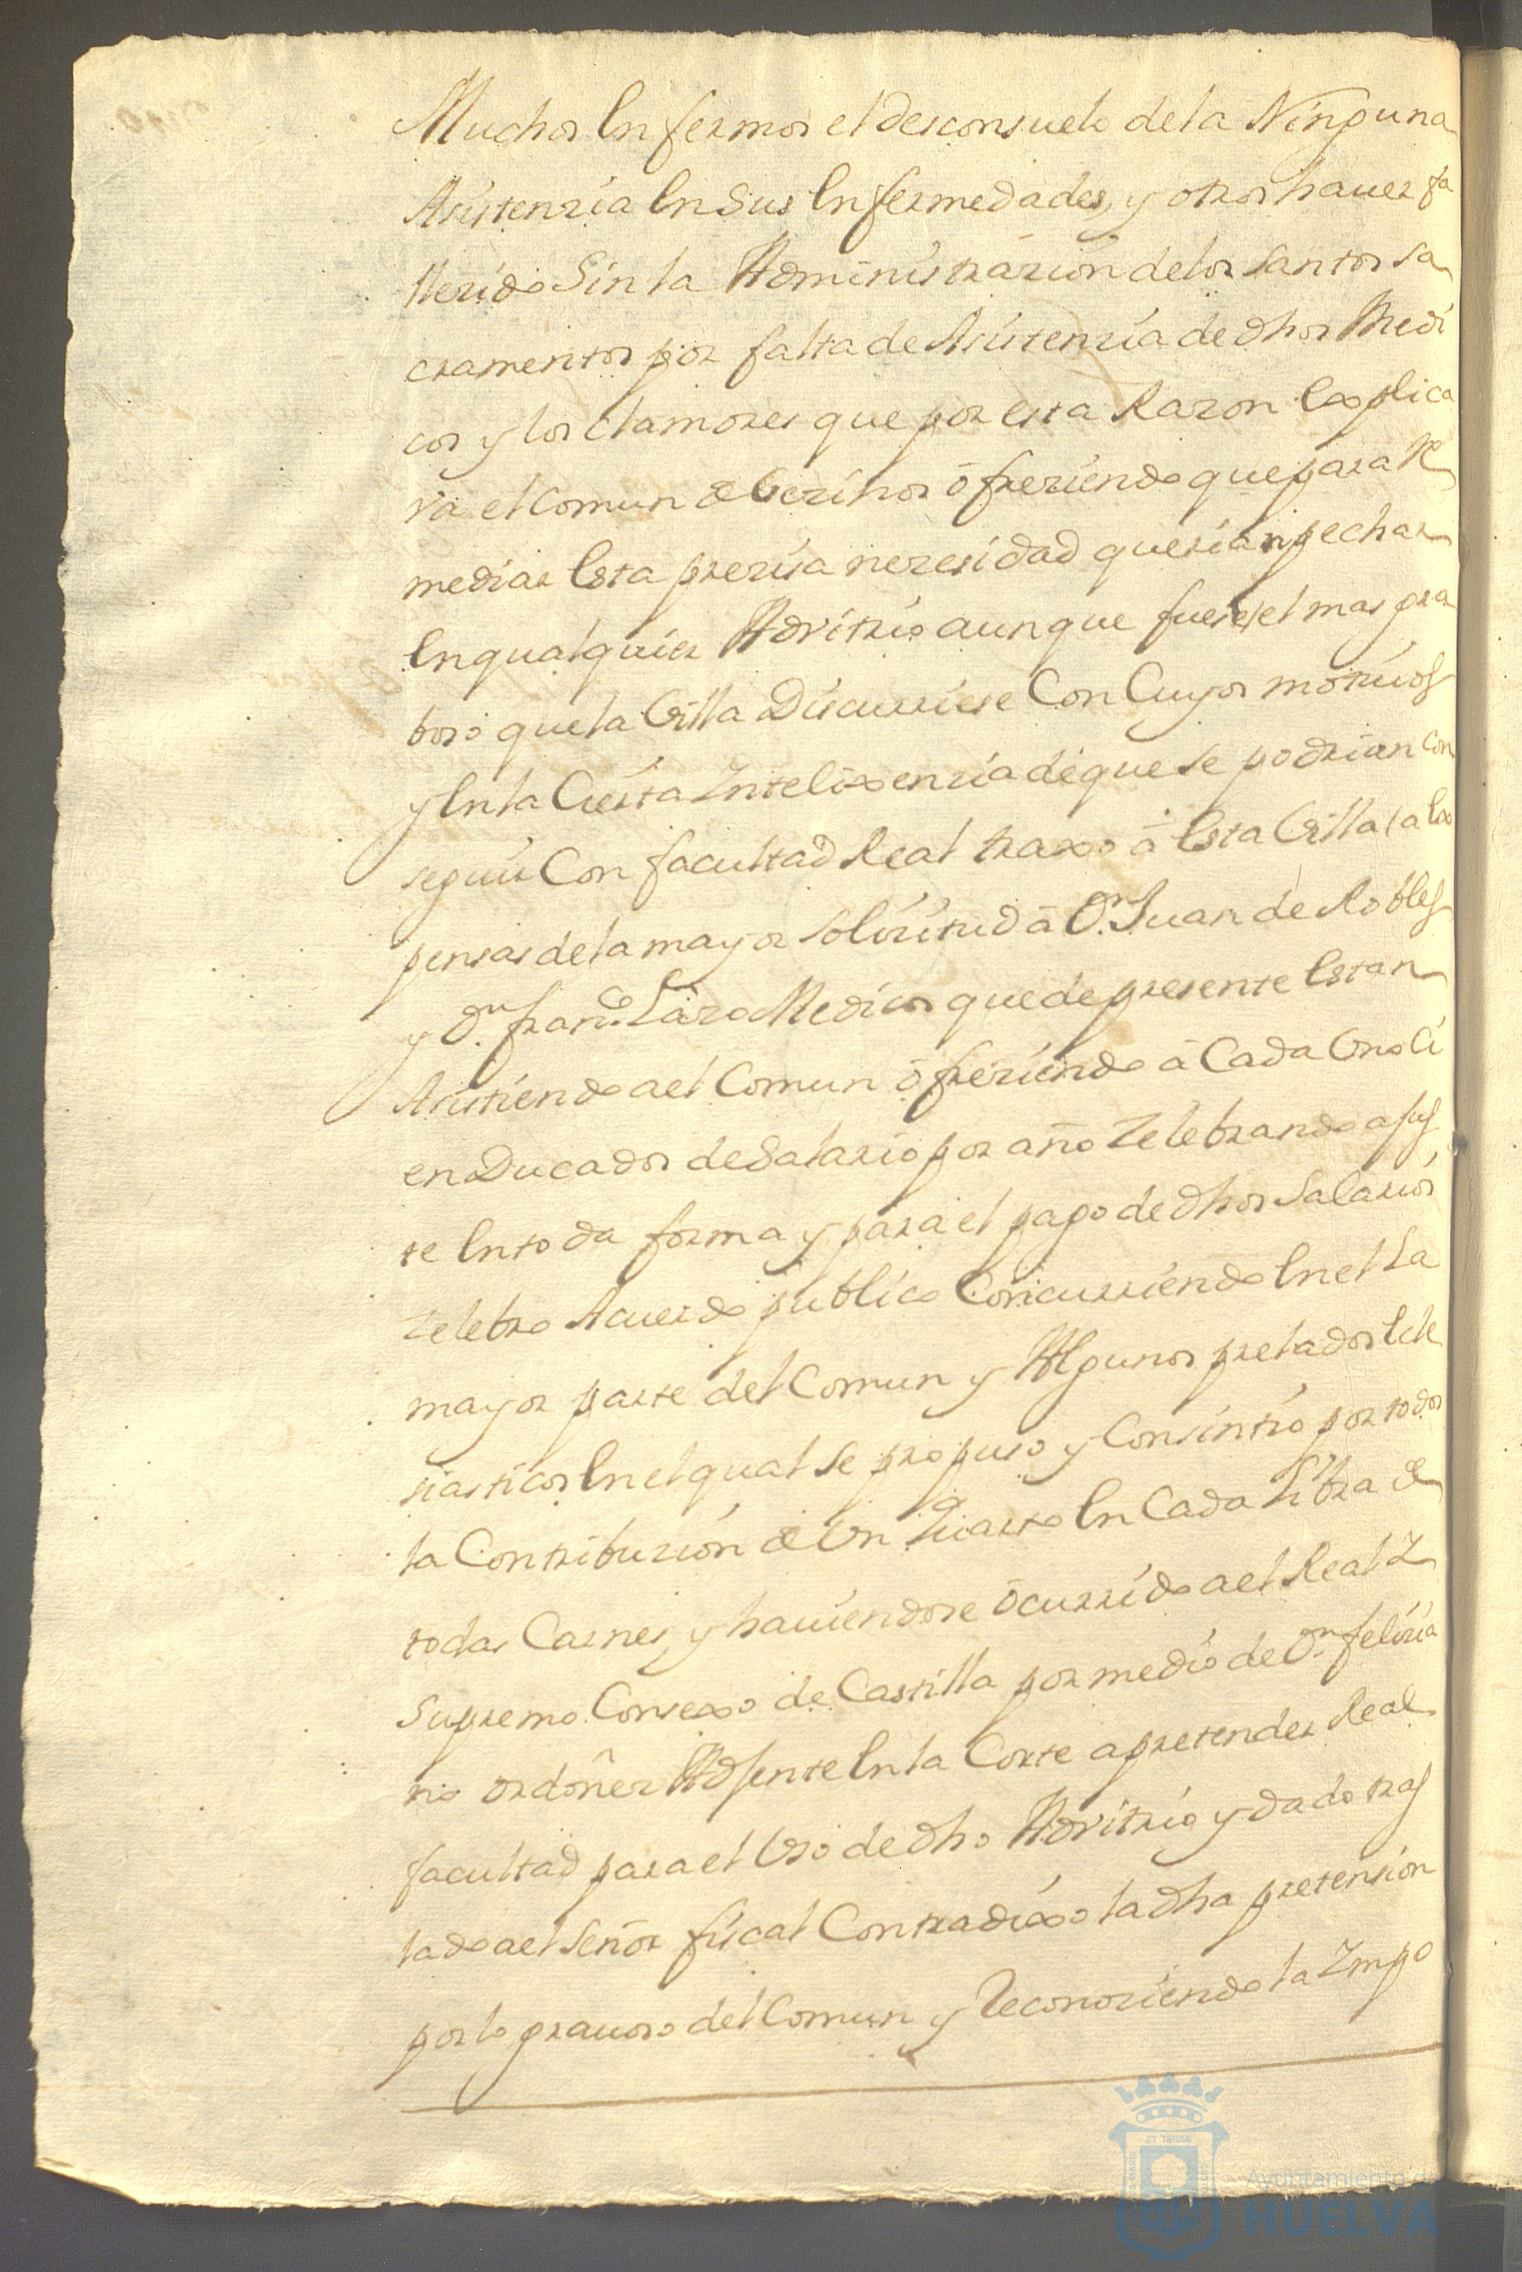 Muchos Enfermos el desconsuelo de la Ninguna
Asistenzia En Sus Enfermedades, y otros hauer fa
llezido Sin la Administrazion de los santos sa
cramentos por falta de Asistenzia de dhos Medi
cos y los clamores que por esta Razon Explica
va el Comun de Vezinos ôfreziendo que para Re
mediar Esta prezisa nezesidad querian pechar
En qualquier Advitrio aunque fuese el mas gra
boso que la Villa Discurriese Con Cuyos motiuos
y En la Cierta Intelixenzia de que se podrian con
seguir Con facultad Real traxo â Esta Villa a Ex
pensas de la mayor solizitud â Dn. Juan de Robles
y Dn. Franco. Lazo Medicos que de presente Estan
Asistiendo a el Comun ôfreziendo â Cada Uno Ci
en Ducados de Salario por año Zelebrando ajus
te En toda forma y para el pago de dhos Salarios
Zelebro Acuerdo publico Concurriendo En el La
mayor parte del Comun y Algunos prelados Ecle
siasticos En el qual se propuso y Consintio por todos
la Contribuzion de Un quarto En Cada Libra de
todas Carnes, y hauiendose ôcurrido a el Real Y
Supremo Consexo de Castilla por medio de Dn. felizia
no ordoñez Ajente En la Corte a pretender Real
facultad para el Uso de dho Advitrio y dado tras
lado a el Señor fiscal Contradixo la dha pretension
por lo grauoso del Comun y Reconoziendo la Impo
Ayuntamiento de
HUELVA